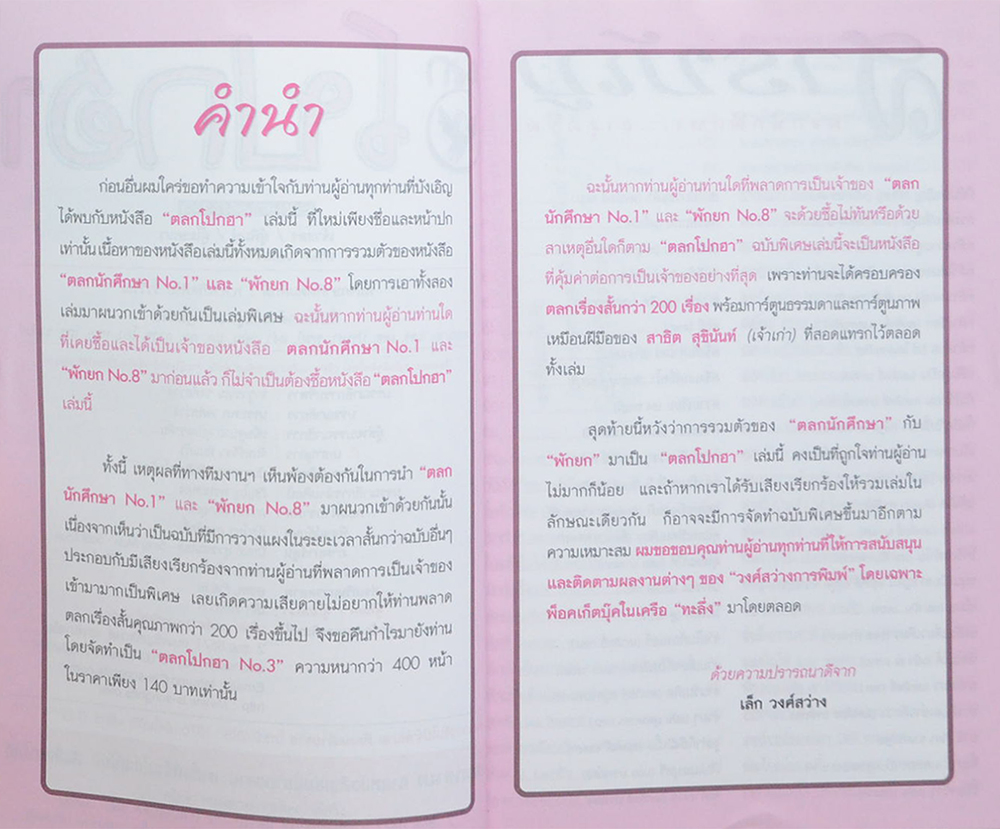 คำนำ
ก่อนอื่นผมใคร่ขอทำความเข้าใจกับท่านผู้อ่านทุกท่านที่บังเอิญ
ได้พบกับหนังสือ “ตลกโปกฮา” เล่มนี้ ที่ใหม่เพียงชื่อและหน้าปก
เท่านั้น เนื้อหาของหนังสือเล่มนี้ทั้งหมดเกิดจากการรวมตัวของหนังสือ
“ตลกนักศึกษา No.1” และ “พักยก No.8” โดยการเอาทั้งสอง
เล่มมาผนวกเข้าด้วยกันเป็นเล่มพิเศษ ฉะนั้นหากท่านผู้อ่านท่านใด
ที่เคยซื้อและได้เป็นเจ้าของหนังสือ ตลกนักศึกษา No.1 และ
“พักยก No.8” มาก่อนแล้ว ก็ไม่จำเป็นต้องซื้อหนังสือ “ตลกโปกฮา”
เล่มนี้
ทั้งนี้ เหตุผลที่ทางทีมงานฯ เห็นพ้องต้องกันในการนำ “ตลก
นักศึกษา No.1” และ “พักยก No.8” มาผนวกเข้าด้วยกันนั้น
เนื่องจากเห็นว่าเป็นฉบับที่มีการวางแผงในระยะเวลาสั้นกว่าฉบับอื่นๆ
ประกอบกับมีเสียงเรียกร้องจากท่านผู้อ่านที่พลาดการเป็นเจ้าของ
เข้ามามากเป็นพิเศษ เลยเกิดความเสียดายไม่อยากให้ท่านพลาด
ตลกเรื่องสั้นคุณภาพกว่า 200 เรื่องขึ้นไป จึงขอคืนกำไรมายังท่าน
โดยจัดทำเป็น “ตลกโปกฮา No.3” ความหนากว่า 400 หน้า
ในราคาเพียง 140 บาทเท่านั้น
ฉะนั้นหากท่านผู้อ่านท่านใดที่พลาดการเป็นเจ้าของ “ตลก
นักศึกษา No.1” และ “พักยก No.8” จะด้วยซื้อไม่ทันหรือด้วย
สาเหตุอื่นใดก็ตาม “ตลกโปกฮา” ฉบับพิเศษเล่มนี้จะเป็นหนังสือ
ที่คุ้มค่าต่อการเป็นเจ้าของอย่างที่สุด เพราะท่านจะได้ครอบครอง
ตลกเรื่องสั้นกว่า 200 เรื่อง พร้อมการ์ตูนธรรมดาและการ์ตูนภาพ
เหมือนฝีมือของ สาธิต สุขินันท์ (เจ้าเก่า) ที่สอดแทรกไว้ตลอด
ทั้งเล่ม
สุดท้ายนี้หวังว่าการรวมตัวของ “ตลกนักศึกษา” กับ
“พักยก” มาเป็น “ตลกโปกฮา” เล่มนี้ คงเป็นที่ถูกใจท่านผู้อ่าน
ไม่มากก็น้อย และถ้าหากเราได้รับเสียงเรียกร้องให้รวมเล่มใน
ลักษณะเดียวกัน ก็อาจจะมีการจัดทำฉบับพิเศษขึ้นมาอีกตาม
ความเหมาะสม ผมขอขอบคุณท่านผู้อ่านทุกท่านที่ให้การสนับสนุน
และติดตามผลงานต่างๆ ของ “วงศ์สว่างการพิมพ์” โดยเฉพาะ
พ็อคเก็ตบุ๊คในเครือ “ทะลึ่ง” มาโดยตลอด
ด้วยความปรารถนาดีจาก
เล็ก วงศ์สว่าง